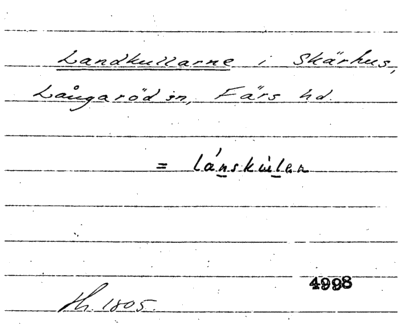 Landkullarne i Skärhus,
Långaröd sn, Färs hd.
= lánskùler
4998
Hh. 1805.